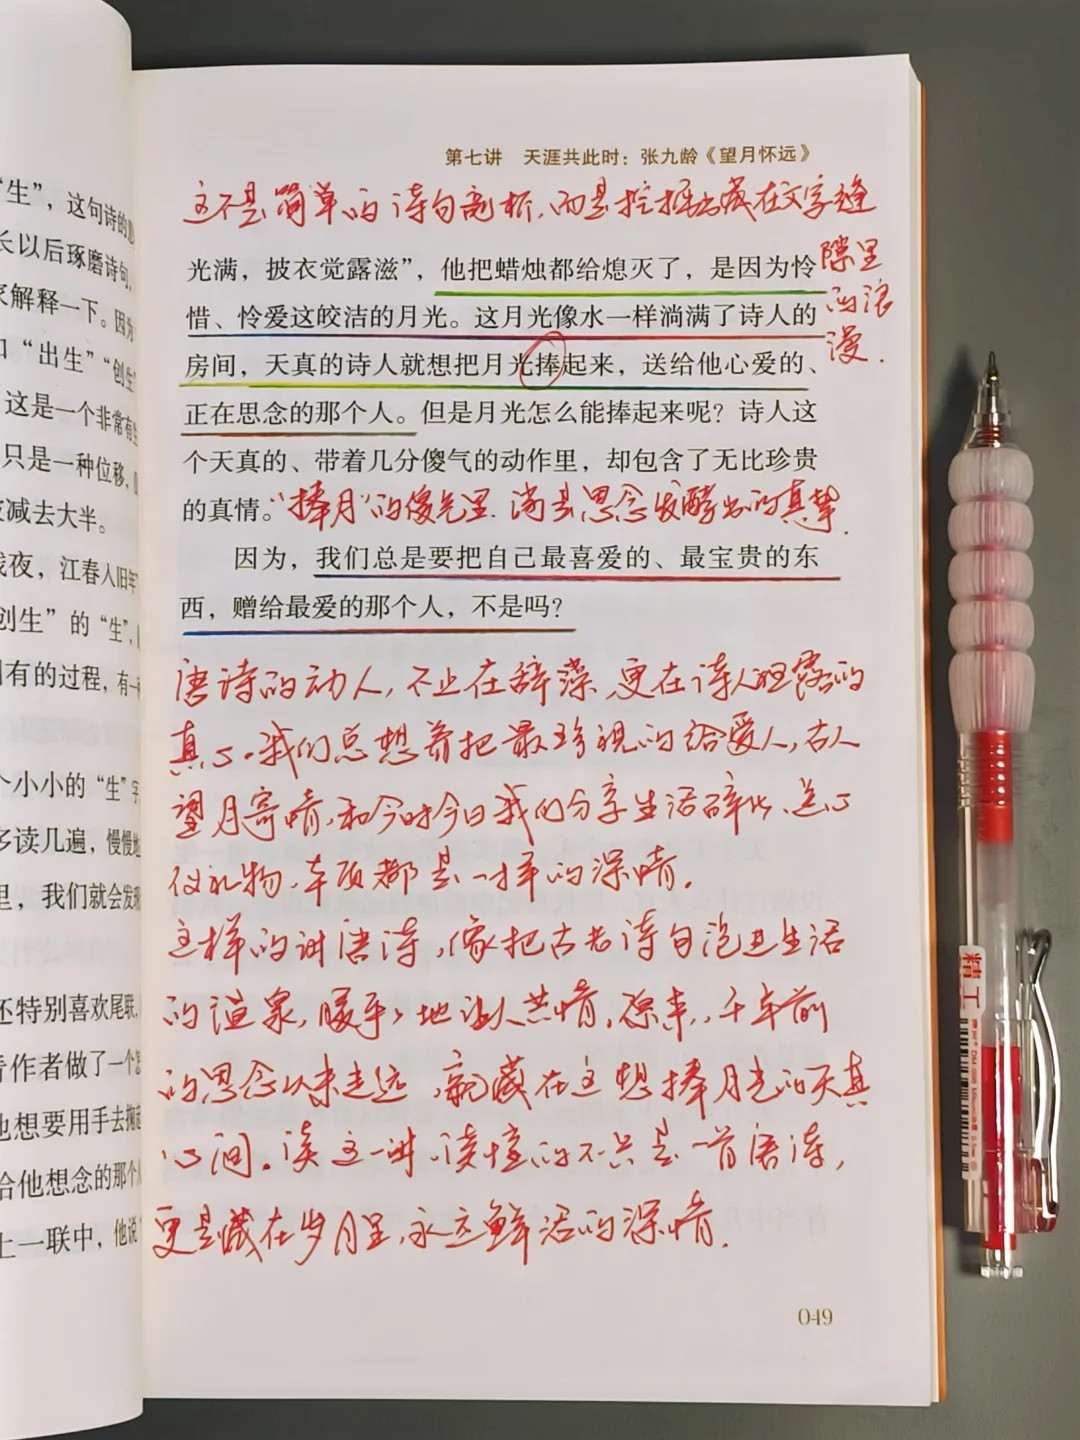 第七讲 天涯共此时：张九龄《望月怀远》
这不是简单的诗句剖析，而是挖掘出藏在文字缝
隙里
的浪
漫.
光满，披衣觉露滋”，他把蜡烛都给熄灭了，是因为怜
惜、怜爱这皎洁的月光。这月光像水一样淌满了诗人的
房间，天真的诗人就想把月光捧起来，送给他心爱的、
正在思念的那个人。但是月光怎么能捧起来呢？诗人这
个天真的、带着几分傻气的动作里，却包含了无比珍贵
的真情。
“捧月”的傻气里，满是思念发酵出的真挚.
因为，我们总是要把自己最喜爱的、最宝贵的东
西，赠给最爱的那个人，不是吗？
唐诗的动人，不止在辞藻，更在诗人袒露的
真心。我们总想着把最珍视的给爱人，古人
望月寄情，和今时今日我们分享生活碎片、送心
仪礼物，本质都是一样的深情.
这样的讲唐诗，像把古老诗句泡进生活
的温泉，暖乎乎地让人共情。原来，千年前
的思念从未走远，就藏在这想捧月光的天真
心间。读这一讲，读懂的不只是一首唐诗，
更是藏在岁月里，永远鲜活的深情.
049
“生”，这句诗的
长以后琢磨诗句，
解释一下。因为
和“出生”“创生”
这是一个非常有
只是一种位移，
减去大半。
夜，江春入旧年”
创生”的“生”，
有的过程，有一
个小小的“生”字
多读几遍，慢慢地
里，我们就会发现
还特别喜欢尾联，
看作者做了一个
他想要用手去掬
给他想念的那个人
上一联中，他说“
精工